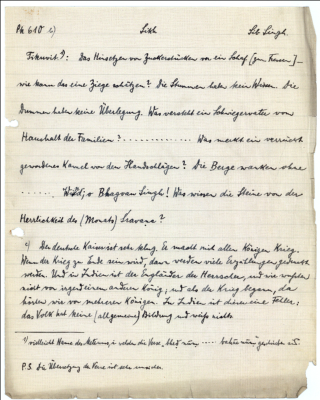 PK 610 2) Sikh Sib Singh.
: Das Hinsetzen von Zuckerstücken vor ein Schaf [zum Fressen] –
wie kann das eine Ziege schützen? Die Stummen haben kein Wissen. Die
Dummen haben keine Überlegung. Was versteht ein Schwiegervater vom
Haushalt der Familien? .............. Was merkt ein verrückt
gewordenes Kamel von den Handschlägen? Die Berge wanken ohne
....... Wind, o Bhagvan Singh! Was wissen die Steine von der
Herrlichkeit des (Monats) Sravana?
Der deutsche Kaiser ist sehr klug. Er macht mit allen Königen Krieg.
Wenn der Krieg zu Ende sein wird, dann werden viele Erzählungen gedruckt
werden. Und in Indien ist der Engländer der Herrscher, und wir wußten
nicht von irgendeinem andern König, und als der Krieg begann, da
hörten wir von mehreren Königen. In Indien ist dieses eine Fehler:
das Volk hat keine (allgemeine) Bildung und weiß nichts.
vielleicht Name des Metrums, in welchem die Verse
P.S. Die Übersetzung der Verse ist sehr unsicher.